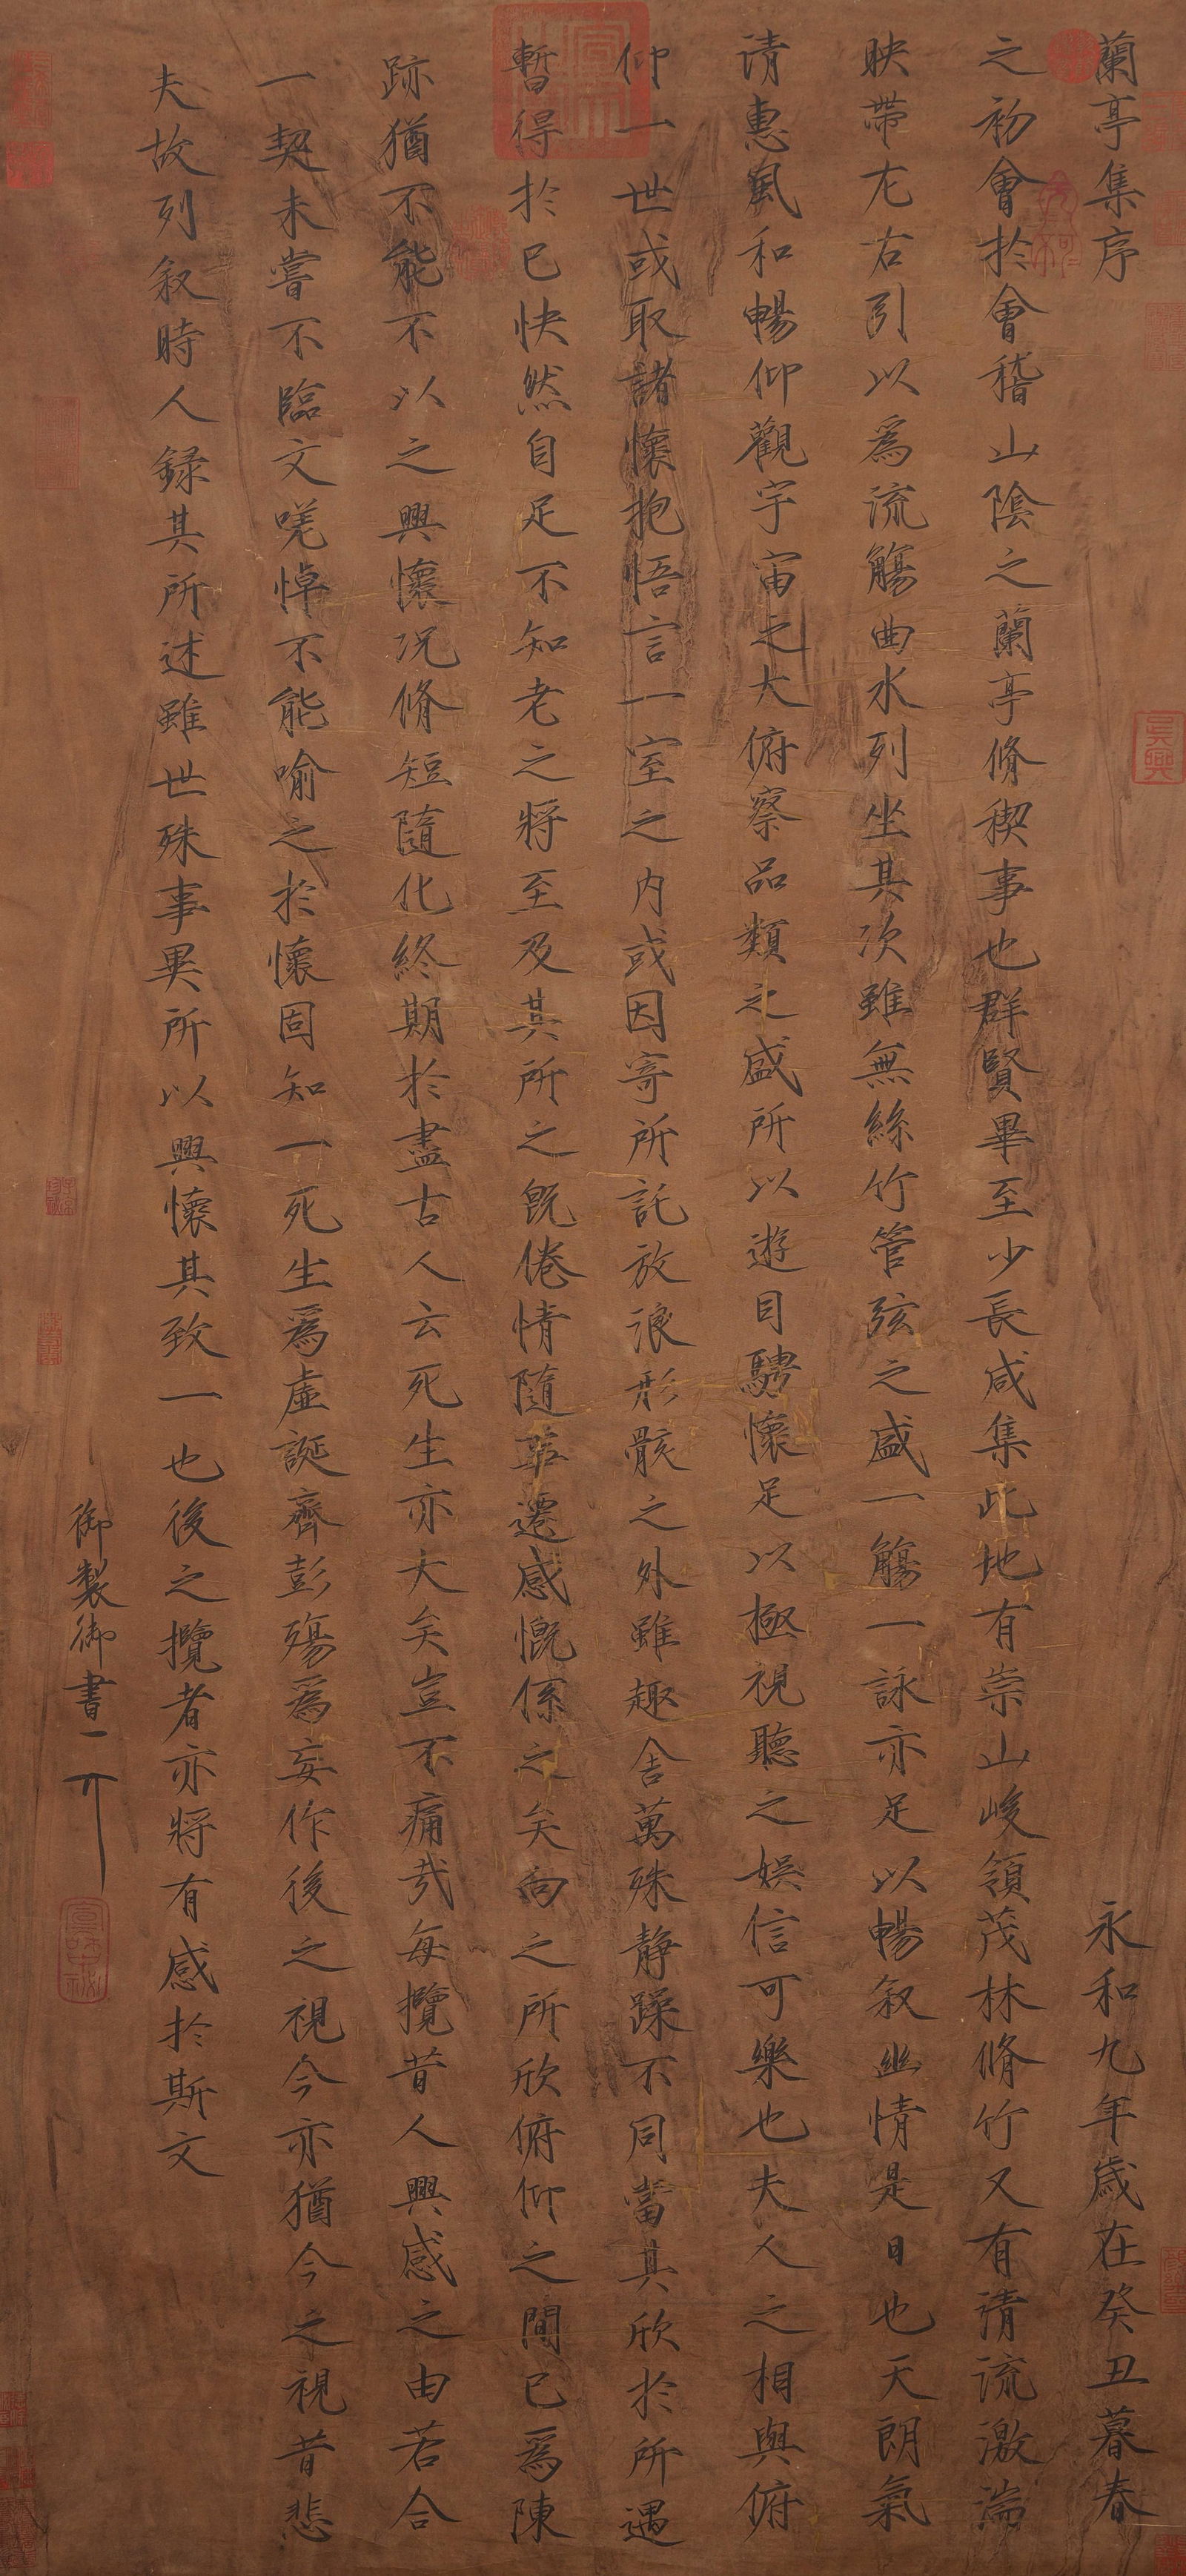 蘭亭集序
永和九年歲在癸丑暮春
之初會於會稽山陰之蘭亭脩稧事也群賢畢至少長咸集此地有崇山峻領茂林脩竹又有清流激湍
映帶左右引以爲流觴曲水列坐其次雖無絲竹管弦之盛一觴一詠亦足以暢叙幽情是日也天朗氣
清惠風和暢仰觀宇宙之大俯察品類之盛所以遊目騁懷足以極視聽之娛信可樂也夫人之相與俯
仰一世或取諸懷抱悟言一室之内或因寄所託放浪形骸之外雖趣舍萬殊静躁不同當其欣於所遇
暫得於己快然自足不知老之將至及其所之既倦情隨事遷感慨係之矣向之所欣俯仰之間已爲陳
跡猶不能不以之興懷况脩短隨化終期於盡古人云死生亦大矣豈不痛哉每攬昔人興感之由若合
一契未嘗不臨文嗟悼不能喻之於懷固知一死生爲虛誕齊彭殤爲妄作後之視今亦猶今之視昔悲
夫故列叙時人録其所述雖世殊事異所以興懷其致一也後之攬者亦將有感於斯文
御製御書
吳興